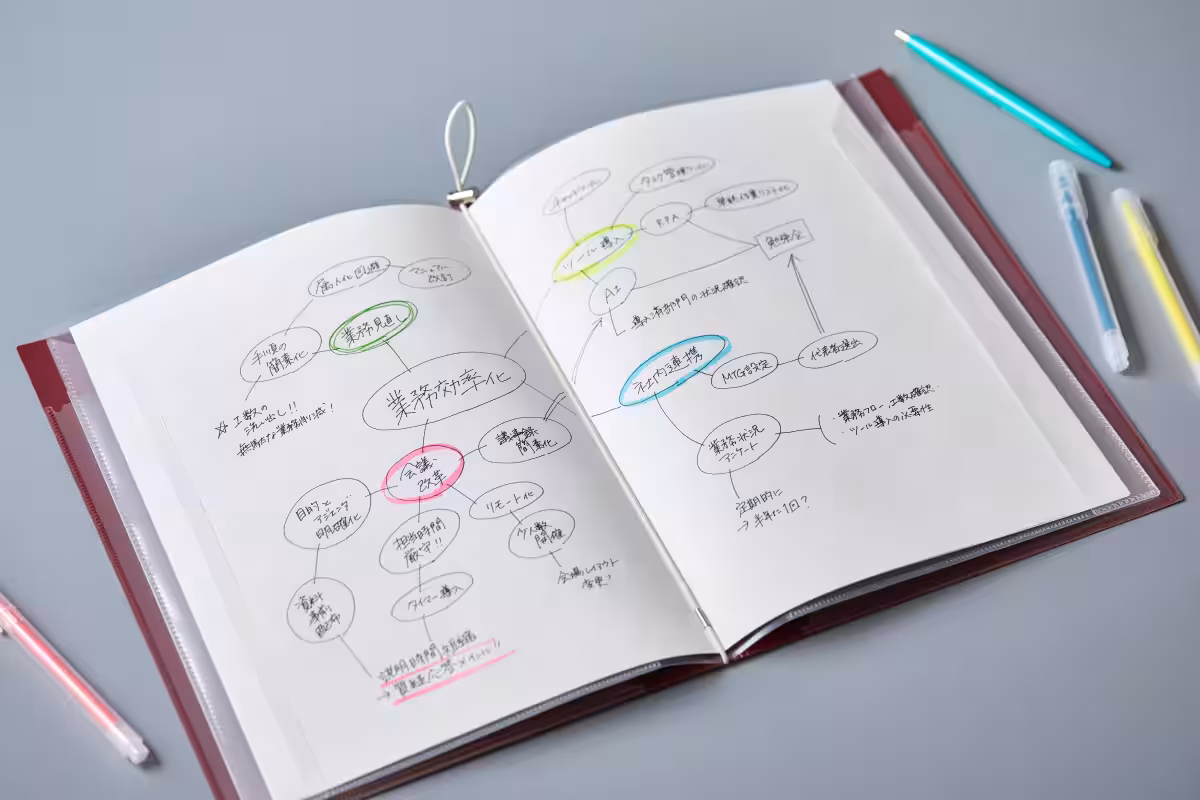 属人化回避
マニュアル
改訂
業務見直し
手順の
簡素化
工数の
洗い出し!!
業務効率化
議事録
簡素化
会議
改革
目的と
アジェンダ
明確化
担当時間
厳守!!
リモート化
少人数
開催
会場レイアウト
変更?
資料
事前
配布
タイマー導入
説明時間短縮
→質疑応答メインに!!
チャットツール
タスク管理ツール
RPA
勉強会
ツール導入
AI
導入済部門の状況確認
社内連携
MTG設定
代表者選出
業務状況
アンケート
・業務フロー、工数確認
・ツール導入の必要性
定期的に
→半年に1回?